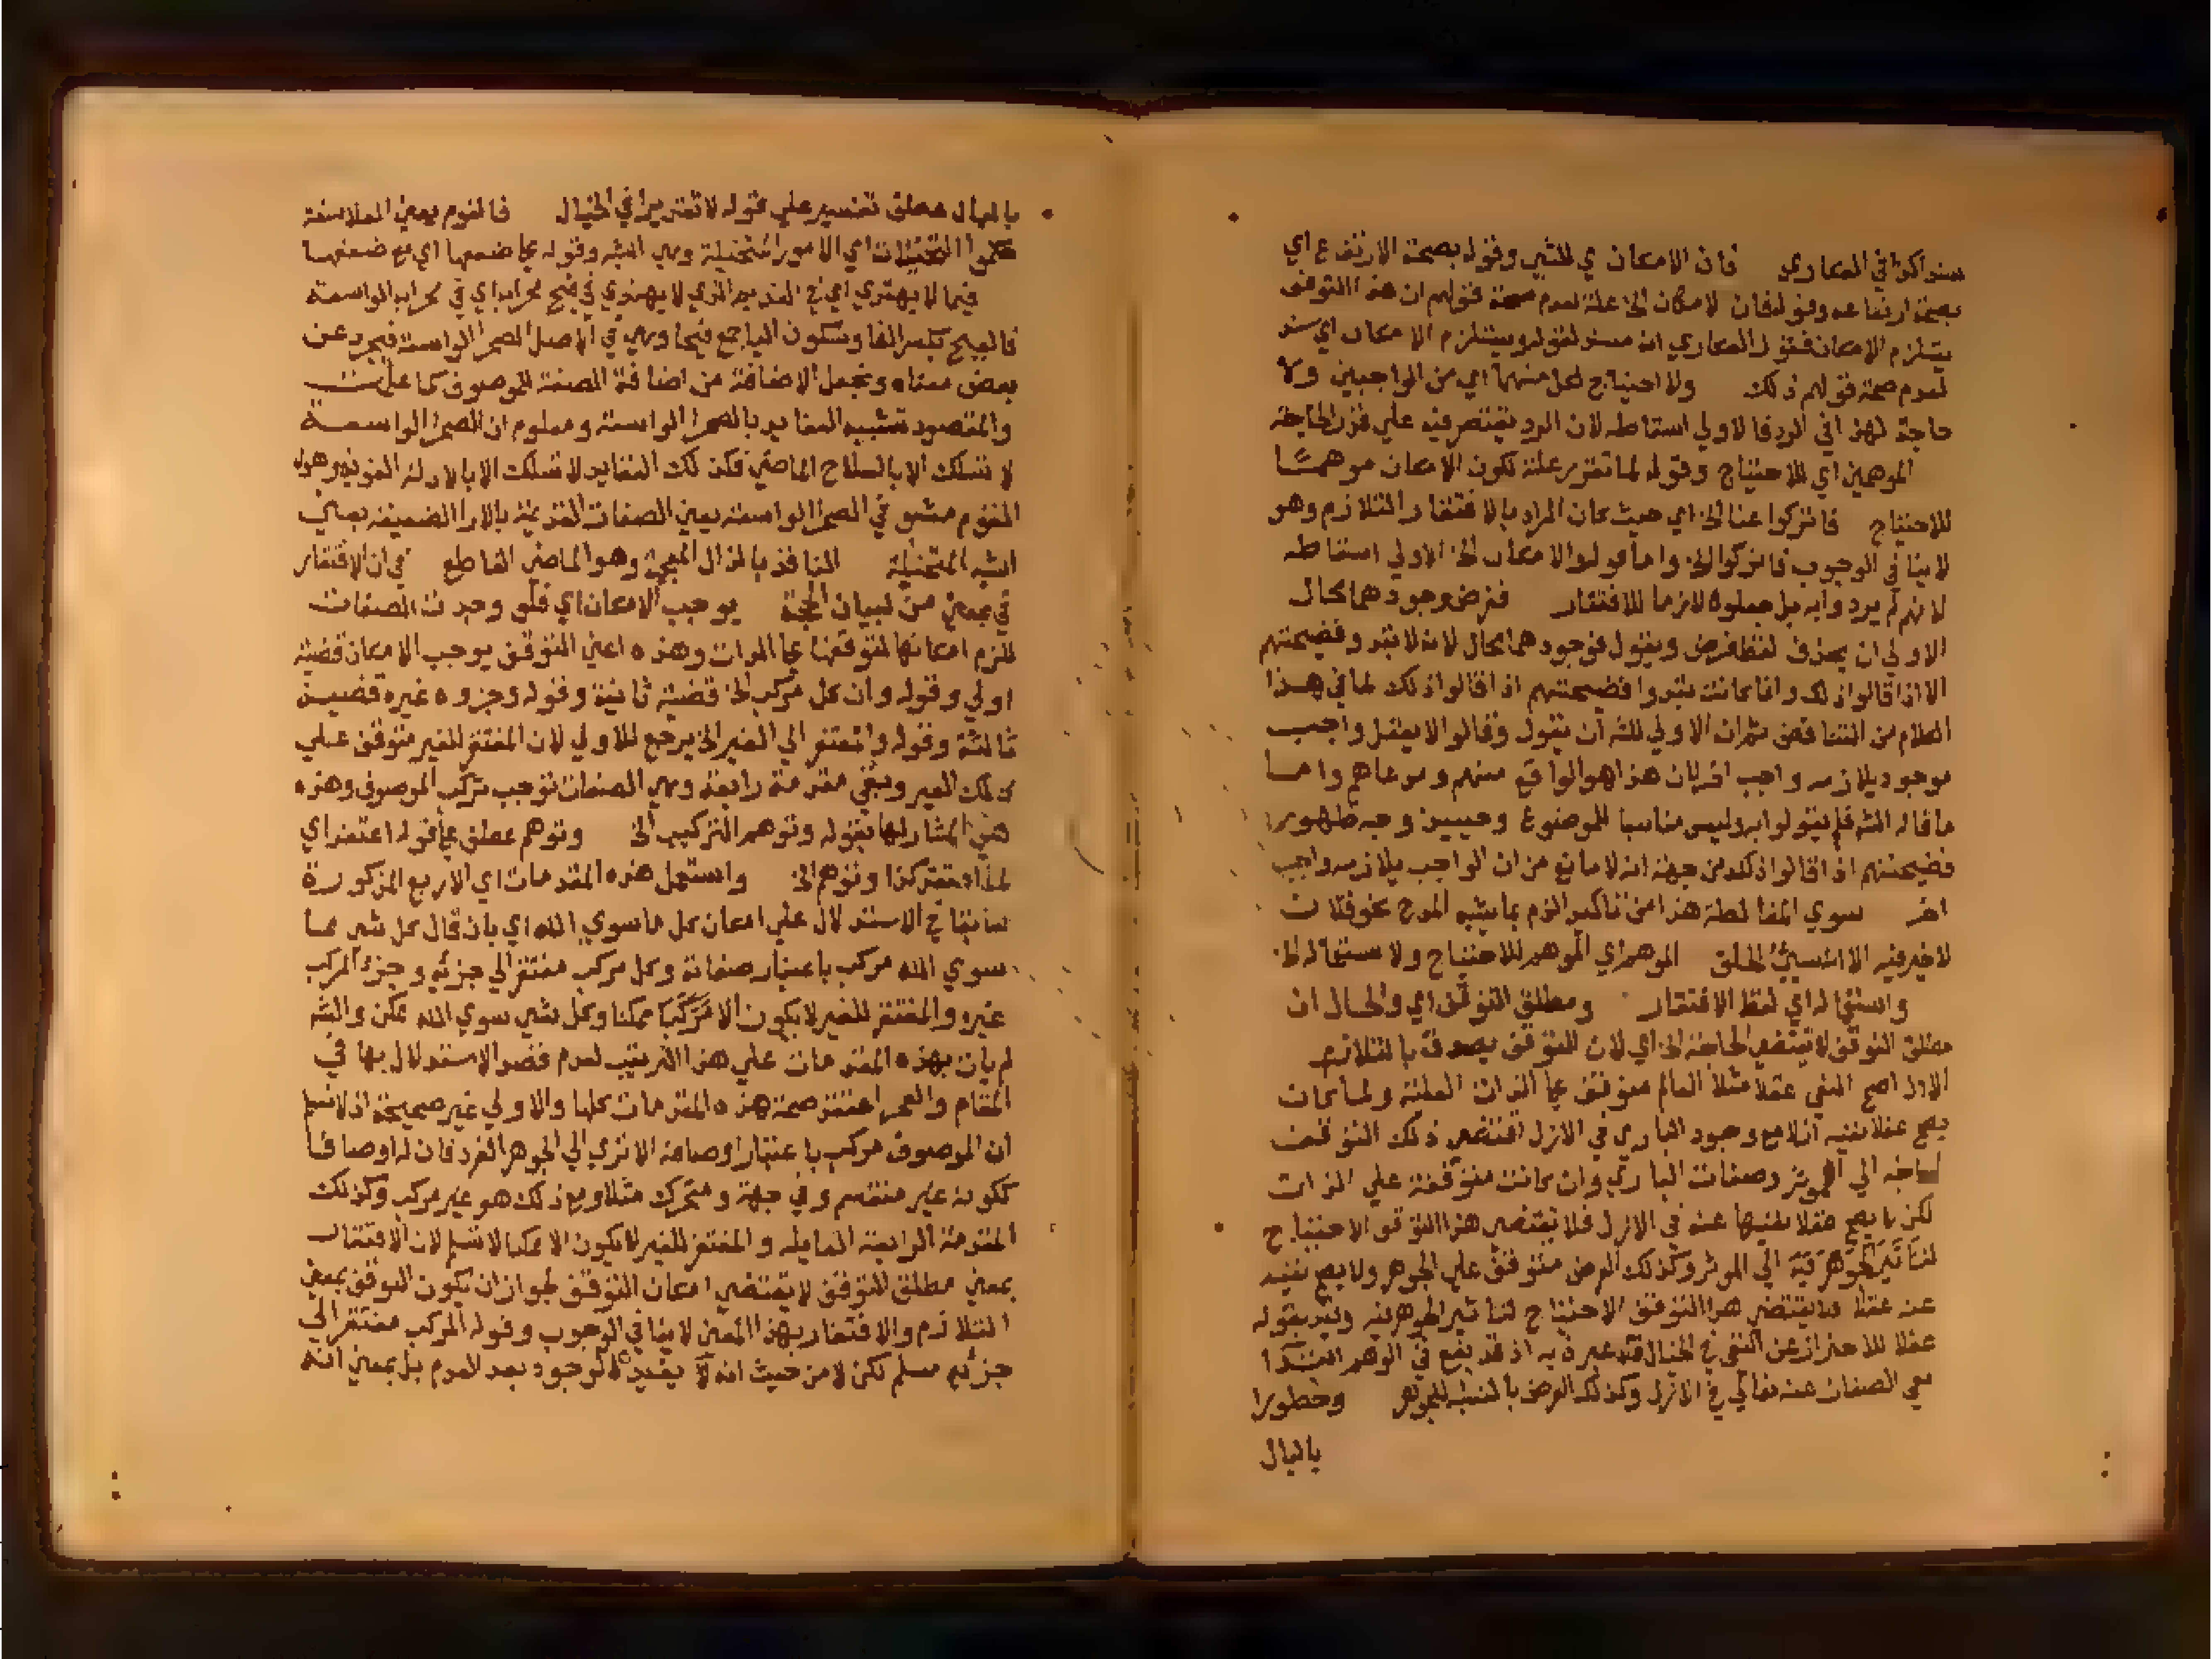 سنوا كذا في العكاري فان الامكان ي للشي وقوله بصحة الارتفاع اي
بصحة ارتفاعه وقوله فان لامكان الخ علة لعدم صحة قولهم ان هذا التوقف
يستلزم الامكان فقول العكاري انه مسند لقوله ويستلزم الامكان اي سند
لعدم صحة قولهم ذلك ولا احتياج لكل منهما اي من الواجبين ولا
حاجة لهذا في الرد فالاولي اسقاطه لان الرد يقتصر فيه علي قدر الحاجة
الموهمين اي للاحتياج وقوله لما تقرر علة لكون الامكان موهما
للاحتياج فاتركوا عنا الخ اي حيث كان المراد بالافتقار التلازم وهو
لاينافي الوجوب فاتركوا الخ والامكان الخ الاولي اسقاطه
لانهم لم يردوا به بل جعلوه لازما للافتقار ففرض وجودهما محال
الاولي ان يحذف لفظ فرض ويقول فوجودهما محال لانه لا وفضيحتهم
الا اذا قالوا ذلك وانما كانت فضيحتهم اذا قالوا ذلك لما في هذا
الكلام من التناقض ثم ان الاولي للش ان يقول وقالوا لا يعقل واجب
موجود يلازمه واجب اخر لان هذا هو الواقع منهم ومدعاهم واما
ما قاله الش فلم يقولوا به وليس مناسبا للموضوع وحينئذ وجه ظهور
فضيحتهم اذا قالوا ذلك من جهة انه لا مانع من ان الواجب يلازمه واجب
اخر سوي المغالطة هذا من تاكيد الذم بما يشبه المدح نحو فلان
لا خير فيه الا انه سيئ الخلق الموهم اي الموهم للاحتياج ولا استحالة الخ
واستحالة اي لفظ الافتقار ومطلق التوقف اي والحال ان
مطلق التوقف لا يقتضي الحاجة الخ اي لان التوقف يصدق بالتلازم
الا اذا صح النفي عقلا مثلا العالم متوقف علي الذات العلية ولما كان
يصح عقلا نفيه ازلا مع وجود الباري في الازل اقتضي ذلك التوقف
الحاجة الي المؤثر وصفات الباري وان كانت متوقفة علي الذات
لكن لا يصح عقلا نفيها عنه في الازل فلا يقتضي هذا التوقف الاحتياج
لتاثير الجوهرية الي المؤثر وكذلك العرض متوقف علي الجوهر ولا يصح نفيه
عنه عقلا فلا يقتضي هذا التوقف الاحتياج لتاثير الجوهر فيه وقيد بقوله
عقلا للاحتراز عن النفي في الخيال فلا عبرة به اذ قد يقع في الوهم
نفي الصفات عنه تعالي في الازل وكذلك العرض بالنسبة للجوهر وخطورا
بالبال
بالبال عطف تفسير علي قوله لا تقديرا في الخيال فالقوم يعني الفلاسفة
حكموا التخيلات اي الامور المتخيلة وهي الشبه وقوله علي ضعفها اي مع ضعفها
فيما لا يهتدي اي في القديم الذي لا يهتدي في فيح محرابه اي في محرابه الواسعة
فالفيح بكسر الفا وسكون اليا جمع فيحا وهي في الاصل الصحرا الواسعة فجرد عن
بعض معناه وتجعل الاضافة من اضافة الصفة للموصوف كما علمت
والمقصود تشبيه العقايد بالصحرا الواسعة ومعلوم ان الصحرا الواسعة
لا تسلك الا بالسلاح الماضي فكذلك العقايد لا تسلك الا بالادلة القوية وهؤلا
القوم مشوا في الصحرا الواسعة يعني الصفات القديمة بالارا الضعيفة يعني
الشبه المتخيلة النافذ بالذال المعجمة وهو الماضي القاطع في ان الافتقار
في بمعني من لبيان الحجة يوجب الامكان اي فلو وجدت الصفات
للزم امكانها لتوقفها علي الذات وهذه اعني التوقف يوجب الامكان قضية
اولي وقوله وان كل مركب الخ قضية ثانية وقوله وجزوه غيره قضية
ثالثة وقوله والمفتقر الي الغير الخ يرجع للاولي لان المفتقر للغير متوقف علي
ذلك الغير وبقي مقدمة رابعة وهي الصفات توجب تركب الموصوف وهذه
هي المشار لها بقوله وتوهم التركيب الخ وتوهم عطف علي قوله اعتقد اي
لما اعتقد كذا وتوهم الخ واستعمل هذه المقدمات اي الاربع المذكورة
سابقا في الاستدلال علي امكان كل ما سوي الله اي بان قال كل شي مما
سوي الله مركب باعتبار صفاته وكل مركب مفتقر الي جزئه وجزء المركب
غيره والمفتقر للغير لا يكون الا مركبا ممكنا وكل شي سوي الله ممكن والش
لم يات بهذه المقدمات علي هذا الترتيب لعدم قصد الاستدلال بها في
المقام والفخر اعتقد صحة هذه المقدمات كلها والاولي غير صحيحة اذ لا نسلم
ان الموصوف مركب باعتبار اوصافه الا تري الي الجوهر الفرد فان له اوصافا
ككونه غير منقسم وفي جهة ومتحرك مثلا ومع ذلك هو غير مركب وكذلك
المقدمة الرابعة القايلة والمفتقر للغير لا يكون الا ممكنا لا نسلم لان الافتقار
بمعني مطلق التوقف لا يقتضي امكان المتوقف لجواز ان يكون التوقف بمعني
التلازم والافتقار بهذا المعني لا ينافي الوجوب وقوله المركب مفتقر الي
جزئه مسلم لكن لا من حيث انه لا يفيد الوجود بعد العدم بل بمعني انه